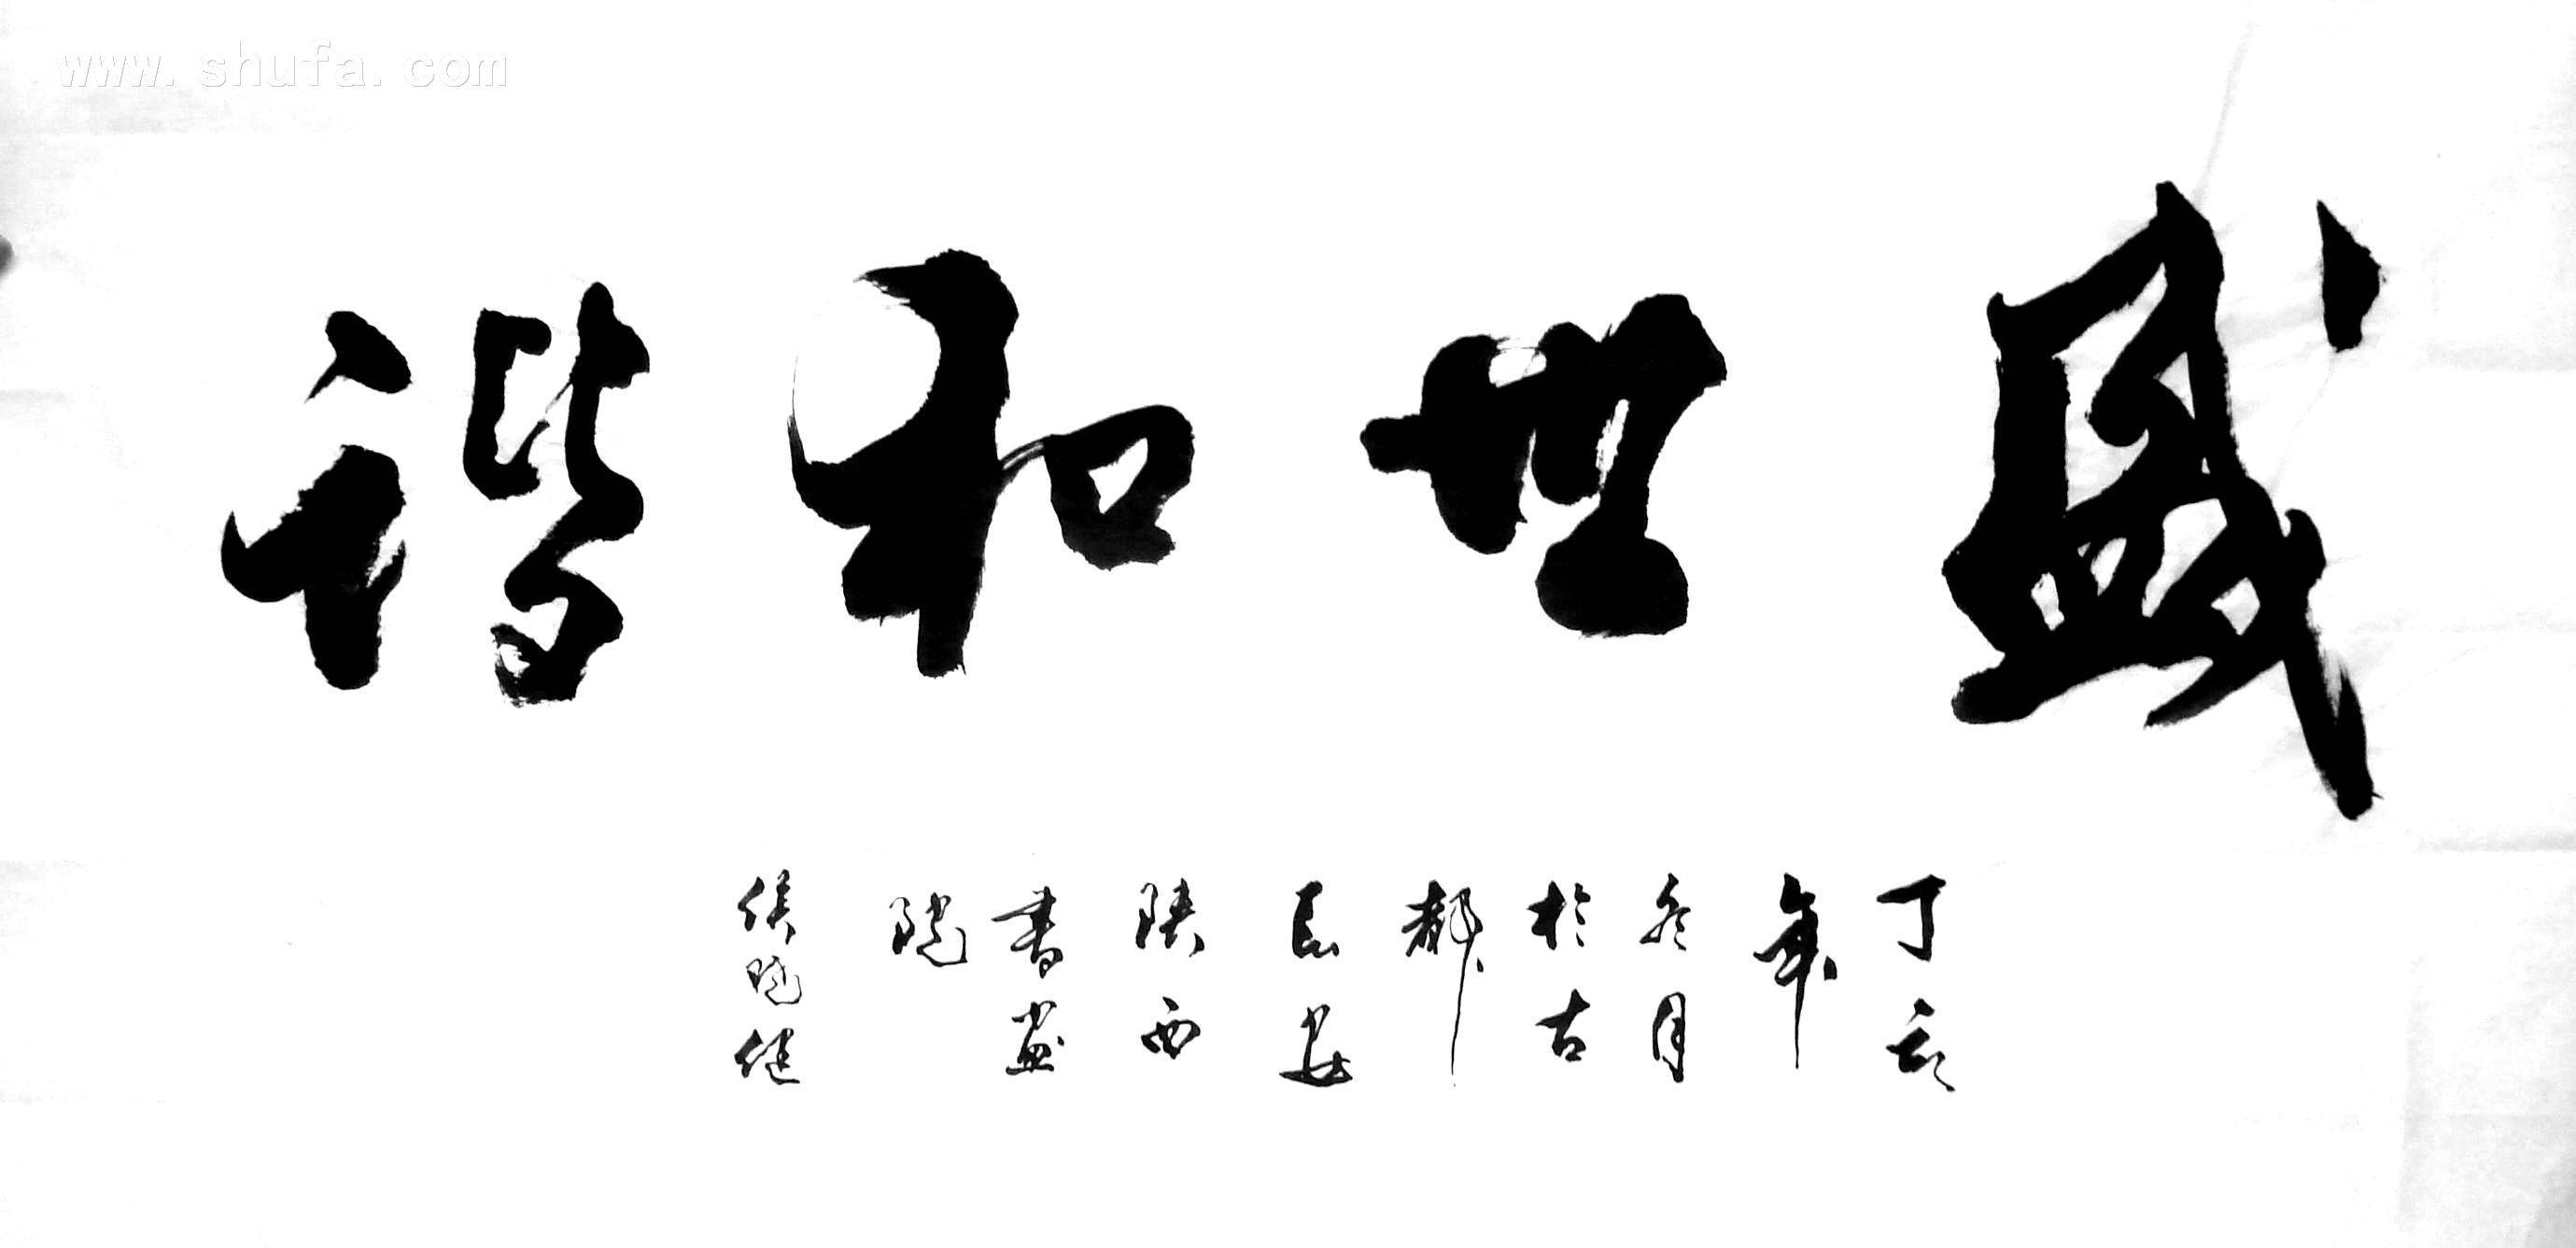 www.shufa.com
盛世和谐
丁亥
年
冬月
於古
都
长安
陕西
书画
院
侯晓健